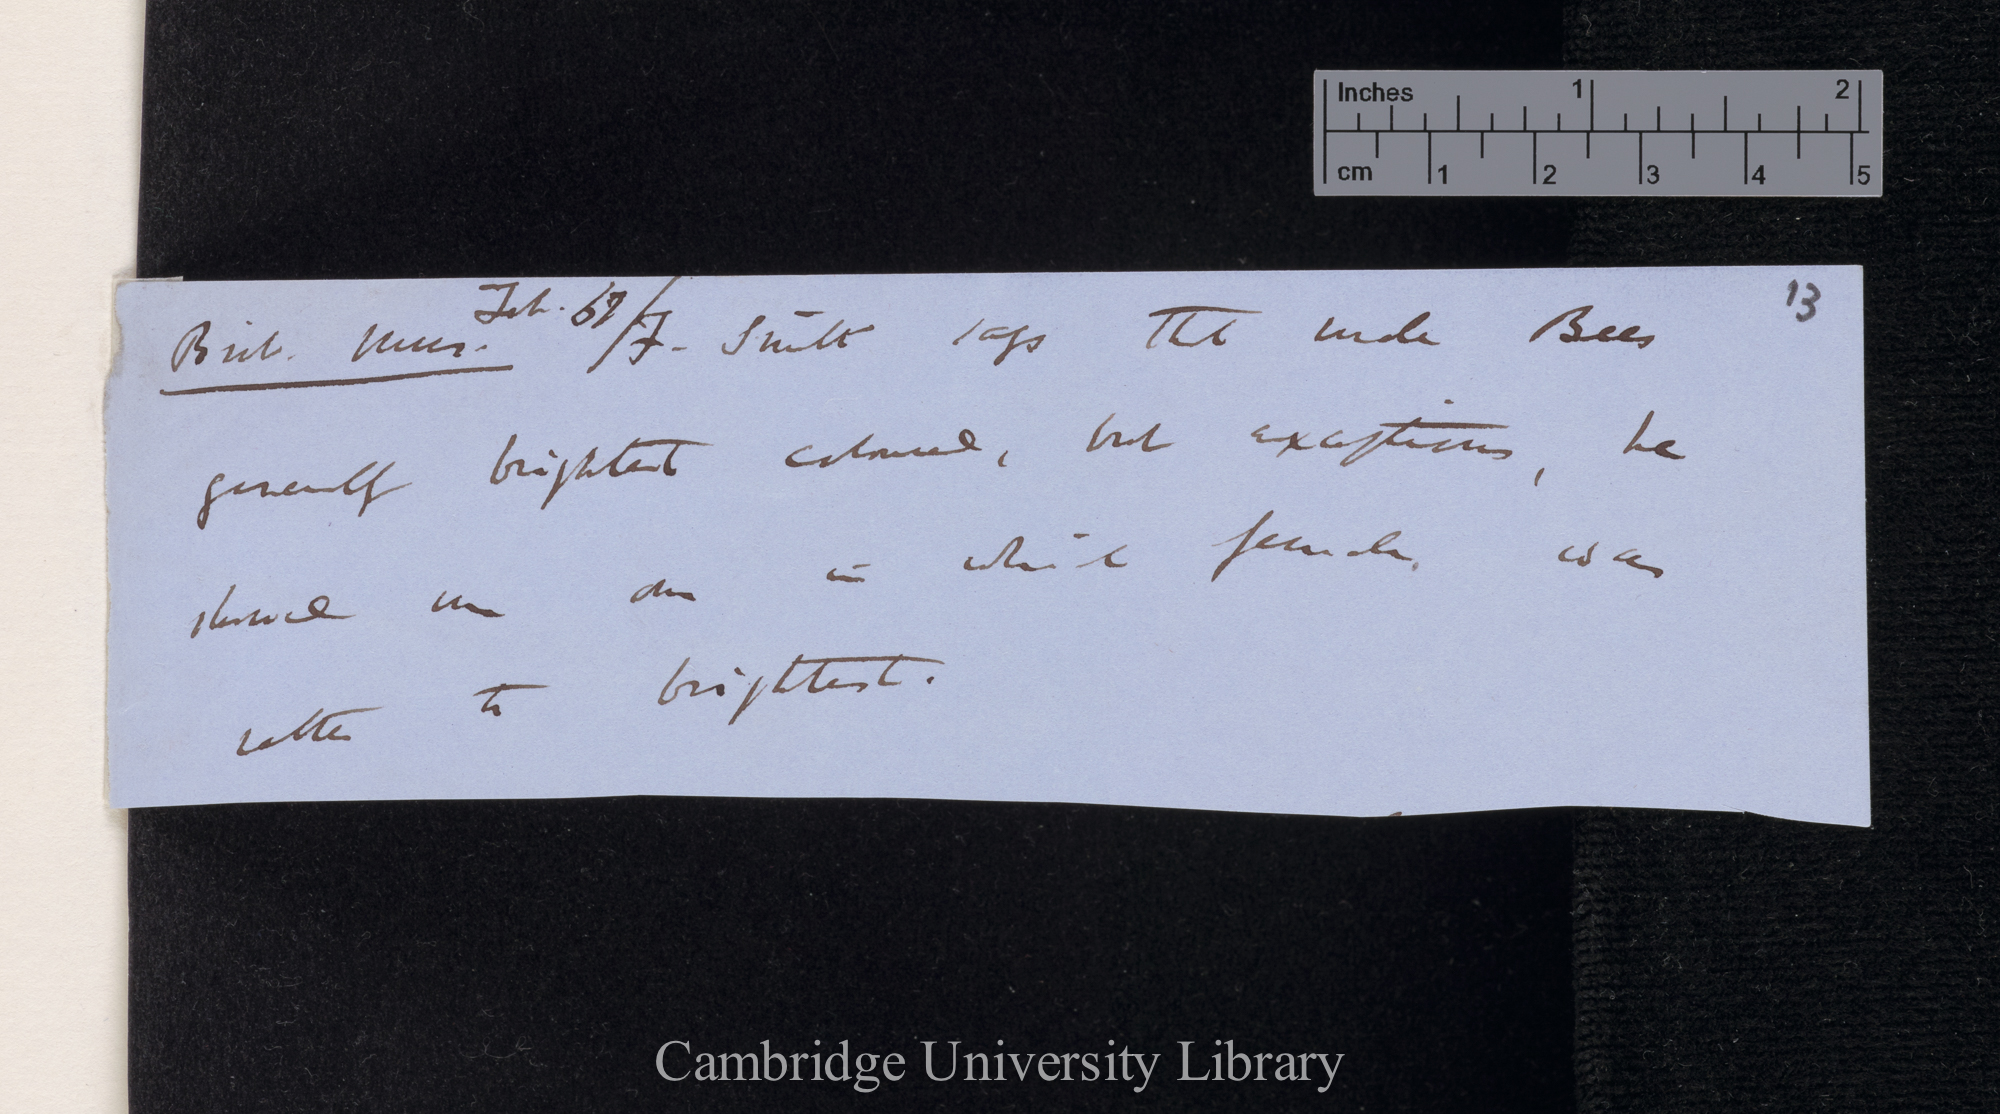 Inches 1 2
cm 1 2 3 4 5
13
Feb. 67/
Brit. Mus. F. Smith says that male Bees
generally brightest coloured, but exceptions, he
showed me one in which female was
rather the brightest.
Cambridge University Library